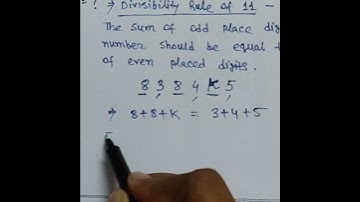 ? → Divisibility Rule of 11 -
The sum of odd place
number should be equal
of even placed digits.
8 3 8 4 K 5
⇒ 8+8+K = 3+4+5